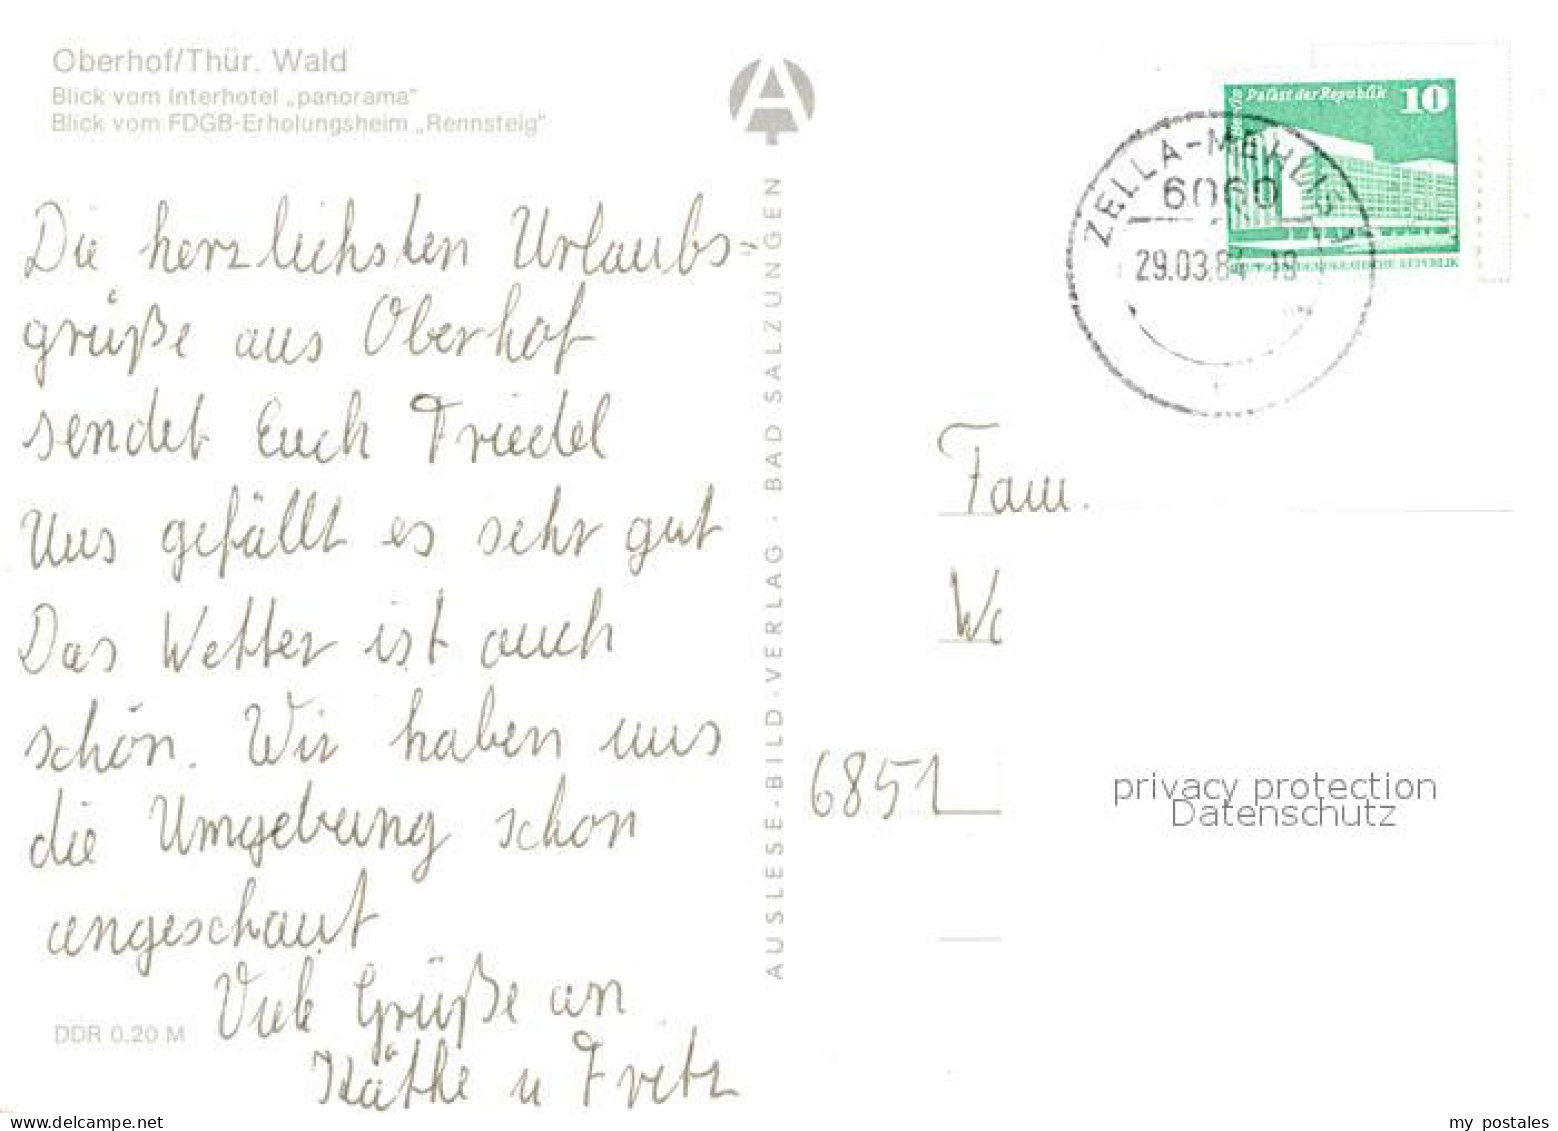 Oberhof/Thür. Wald
Blick vom Interhotel „panorama“
Blick vom FDGB-Erholungsheim „Rennsteig“
Die herzlichsten Urlaubs-
grüße aus Oberhof
sendet Euch Friedel
Uns gefällt es sehr gut
Das Wetter ist auch
schön. Wir haben uns
die Umgebung schon
angeschaut
Viele Grüße an
Käthe u Fritz
DDR 0,20 M
AUSLESE-BILD-VERLAG · BAD SALZUNGEN
Berlin Palast der Republik 10
DEUTSCHE DEMOKRATISCHE REPUBLIK
ZELLA-MEHLIS 1
6060
29.03.84 -19
Fam.
6851
privacy protection
Datenschutz
www.delcampe.net
my_postales